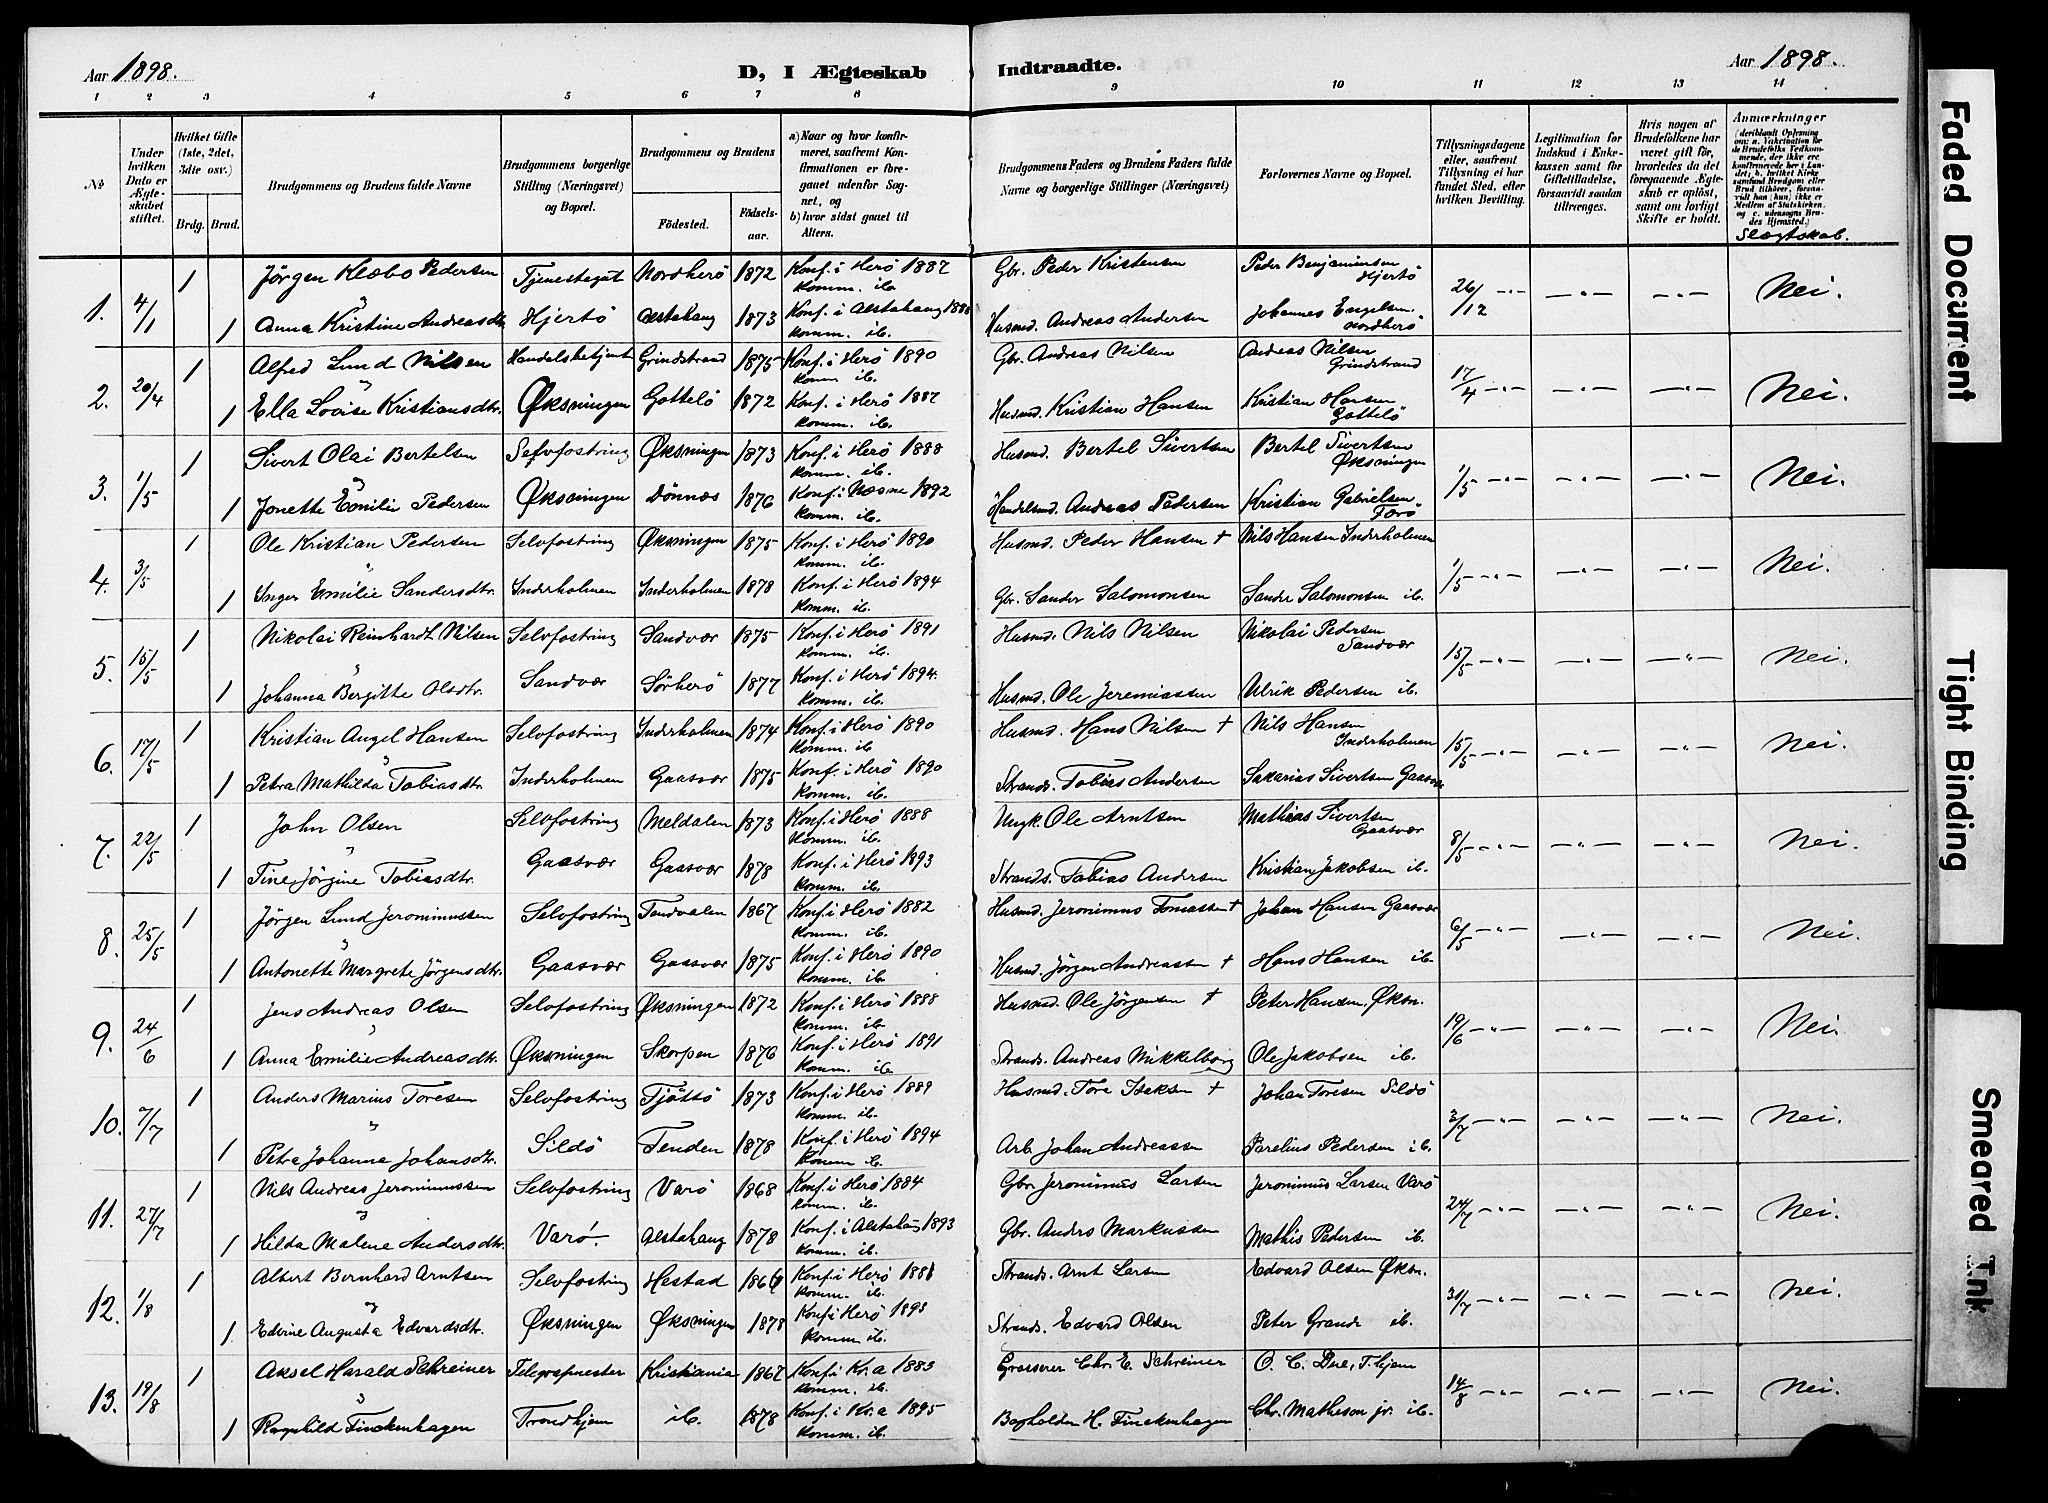 Aar 1898.
D, I Ægteskab Indtraadte.
Aar 1898.
1 2 3 4 5 6 7 8 9 10 11 12 13 14
No
Under hvilken Dato er Ægteskabet stiftet.
Hvilket Gifte (1ste, 2det, 3die osv.)
Brdg. Brud.
Brudgommens og Brudens fulde Navne
Brudgommens borgerlige Stilling (Næringsvei) og Bopæl.
Brudgommens og Brudens
Fødested.
Fødselsaar.
a) Naar og hvor konfirmeret, saafremt Konfirmationen er foregaaet udenfor Sognet, og
b) hvor sidst gaaet til Alters.
Brudgommens Faders og Brudens Faders fulde Navne og borgerlige Stillinger (Næringsvei)
Forlovernes Navne og Bopæl.
Tillysningsdagene eller, saafremt Tillysning ei har fundet Sted, efter hvilken Bevilling.
Legitimation for Indskud i Enkekassen samt for Giftetilladelse, forsaavidt saadan tiltrænges.
Hvis nogen af Brudefolkene har været gift før, hvorledes da det foregaaende Ægteskab er opløst, samt om lovligt Skifte er holdt.
Anmærkninger
(deriblandt Oplysning om: a. Vaksination for de Brudefolks Vedkommende, der ikke ere konfirmerede her i Landet; b. hvilket Kirkesamfund Brudgom eller Brud tilhører, forsaavidt han (hun) ikke er Medlem af Statskirken, og c. udensogns Brudes Hjemsted.)
Slægtskab.
1. 4/1 1 Jörgen Klæbo Pedersen Tjenestegut Nordherö 1872 Konf. i Herö 1887 Komm. ib. Gbr. Peder Kristensen Peder Benjaminsen Hjertö 26/12 Nei.
1 Anna Kristine Andreasdtr. Hjertö Alstahaug 1873 Konf. i Alstahaug 1888 Komm. ib. Husmd. Andreas Andersen Johannes Engelsen Nordherö
2. 20/4 1 Alfred Lund Nilsen Handelsbetjent Grindstrand 1875 Konf. i Herö 1890 Komm. ib. Gbr. Andreas Nilsen Andreas Nilsen Grindstrand 17/4 Nei.
1 Ella Lovise Kristiansdtr. Øksningen Gottelö 1872 Konf. i Herö 1887 Komm. ib. Husmd. Kristian Hansen Kristian Hansen Gottelö
3. 1/5 1 Sivert Olai Bertelsen Selvfostring Øksningen 1873 Konf. i Herö 1888 Komm. ib. Husmd. Bertel Sivertsen Bertel Sivertsen Øksningen 1/5 Nei.
1 Jonette Emilie Pedersen Øksningen Dönnæs 1876 Konf. i Næsne 1892 Komm. ib. Handelsmd. Andreas Pedersen Kristian Gabrielsen Færö
4. 3/5 1 Ole Kristian Pedersen Selvfostring Øksningen 1875 Konf. i Herö 1890 Komm. ib. Husmd. Peder Hansen † Nils Hansen Inderholmen 1/5 Nei.
1 Inger Emilie Sandersdtr. Inderholmen Inderholmen 1878 Konf. i Herö 1894 Komm. ib. Gbr. Sander Salomonsen Sander Salomonsen ib.
5. 15/5 1 Nikolai Reinhardt Nilsen Selvfostring Sandvær 1875 Konf. i Herö 1891 Komm. ib. Husmd. Nils Nilsen Nikolai Pedersen Sandvær 15/5 Nei.
1 Johanna Bergitte Olsdtr. Sandvær Sörherö 1877 Konf. i Herö 1894. Komm. ib. Husmd. Ole Jeremiassen Ulrik Pedersen ib.
6. 17/5 1 Kristian Angel Hansen Selvfostring Inderholmen 1874 Konf. i Herö 1890 Komm. ib. Husmd. Hans Nilsen † Nils Hansen Inderholmen 15/5 Nei.
1 Petra Mathilda Tobiasdtr. Inderholmen Gaasvær 1875 Konf. i Herö 1890 Komm. ib. Strands. Tobias Andersen Sakarias Sivertsen Gaasvær
7. 22/5 1 John Olsen Selvfostring Meldalen 1873 Konf. i Herö 1888 Komm. ib. Ungk. Ole Arntsen Mathias Sivertsen Gaasvær 8/5 Nei.
1 Tine Jörgine Tobiasdtr. Gaasvær Gaasvær 1878 Konf. i Herö 1893 Komm. ib. Strands. Tobias Andersen Kristian Jakobsen ib.
8. 25/5 1 Jörgen Lund Jeronimussen Selvfostring Tendvalen 1867 Konf. i Herö 1882 Komm. ib. Husmd. Jeronimus Tomassen † Johan Hansen Gaasvær 6/5 Nei.
1 Antonette Margrete Jörgensdtr. Gaasvær Gaasvær 1875 Konf. i Herö 1890 Komm. ib. Husmd. Jörgen Andreassen † Hans Hansen ib.
9. 24/6 1 Jens Andreas Olsen Selvfostring Øksningen 1872 Konf. i Herö 1888 Komm. ib. Husmd. Ole Jörgensen † Peter Hansen, Øksn. 19/6 Nei.
1 Anna Emilie Andreasdtr. Øksningen Skorpen 1876 Konf. i Herö 1891 Komm. ib. Strands. Andreas Mikkelborg Ole Jakobsen ib.
10. 7/7 1 Anders Marius Toresen Selvfostring Tjöttö 1873 Konf. i Herö 1889 Komm. ib. Husmd. Tore Isaksen † Johan Toresen Sildö 3/7 Nei.
1 Petra Johanna Johansdtr. Sildö Tenden 1878 Konf. i Herö 1894 Komm. ib. Arb. Johan Andreassen Parelius Pedersen ib.
11. 27/7 1 Nils Andreas Jeronimussen Selvfostring Varö 1868 Konf. i Herö 1884 Komm. ib. Gbr. Jeronimus Larsen Jeronimus Larsen Varö 24/7 Nei.
1 Hilda Malene Andersdtr. Varö. Alstahaug 1878 Konf. i Alstahaug 1893 Komm. ib. Gbr. Anders Markussen Mathis Pedersen ib.
12. 1/8 1 Albert Bernhard Arntsen Selvfostring Hestad 1866 Konf. i Herö 1881 Komm. ib. Strands. Arnt Larsen Edvard Olsen Øksn. 31/7 Nei.
1 Edvine Augusta Edvardsdtr. Øksningen Øksningen 1878 Konf. i Herö 1893 Komm. ib. Strands. Edvard Olsen Peter Grande ib.
13. 19/8 1 Aksel Harald Schreiner Telegrafmester Kristiania 1867 Konf. i Kr.a 1883 Komm. ib. Grosserer Chr. E. Schreiner O. C. Due, T.hjem 14/8 Nei.
1 Ragnhild Finckenhagen Trondhjem ib. 1878 Konf. i Kr.a 1895 Komm. ib. Bogholder H. Finckenhagen Chr. Matheson jr. ib.
Faded Document
Tight Binding
Smeared Ink